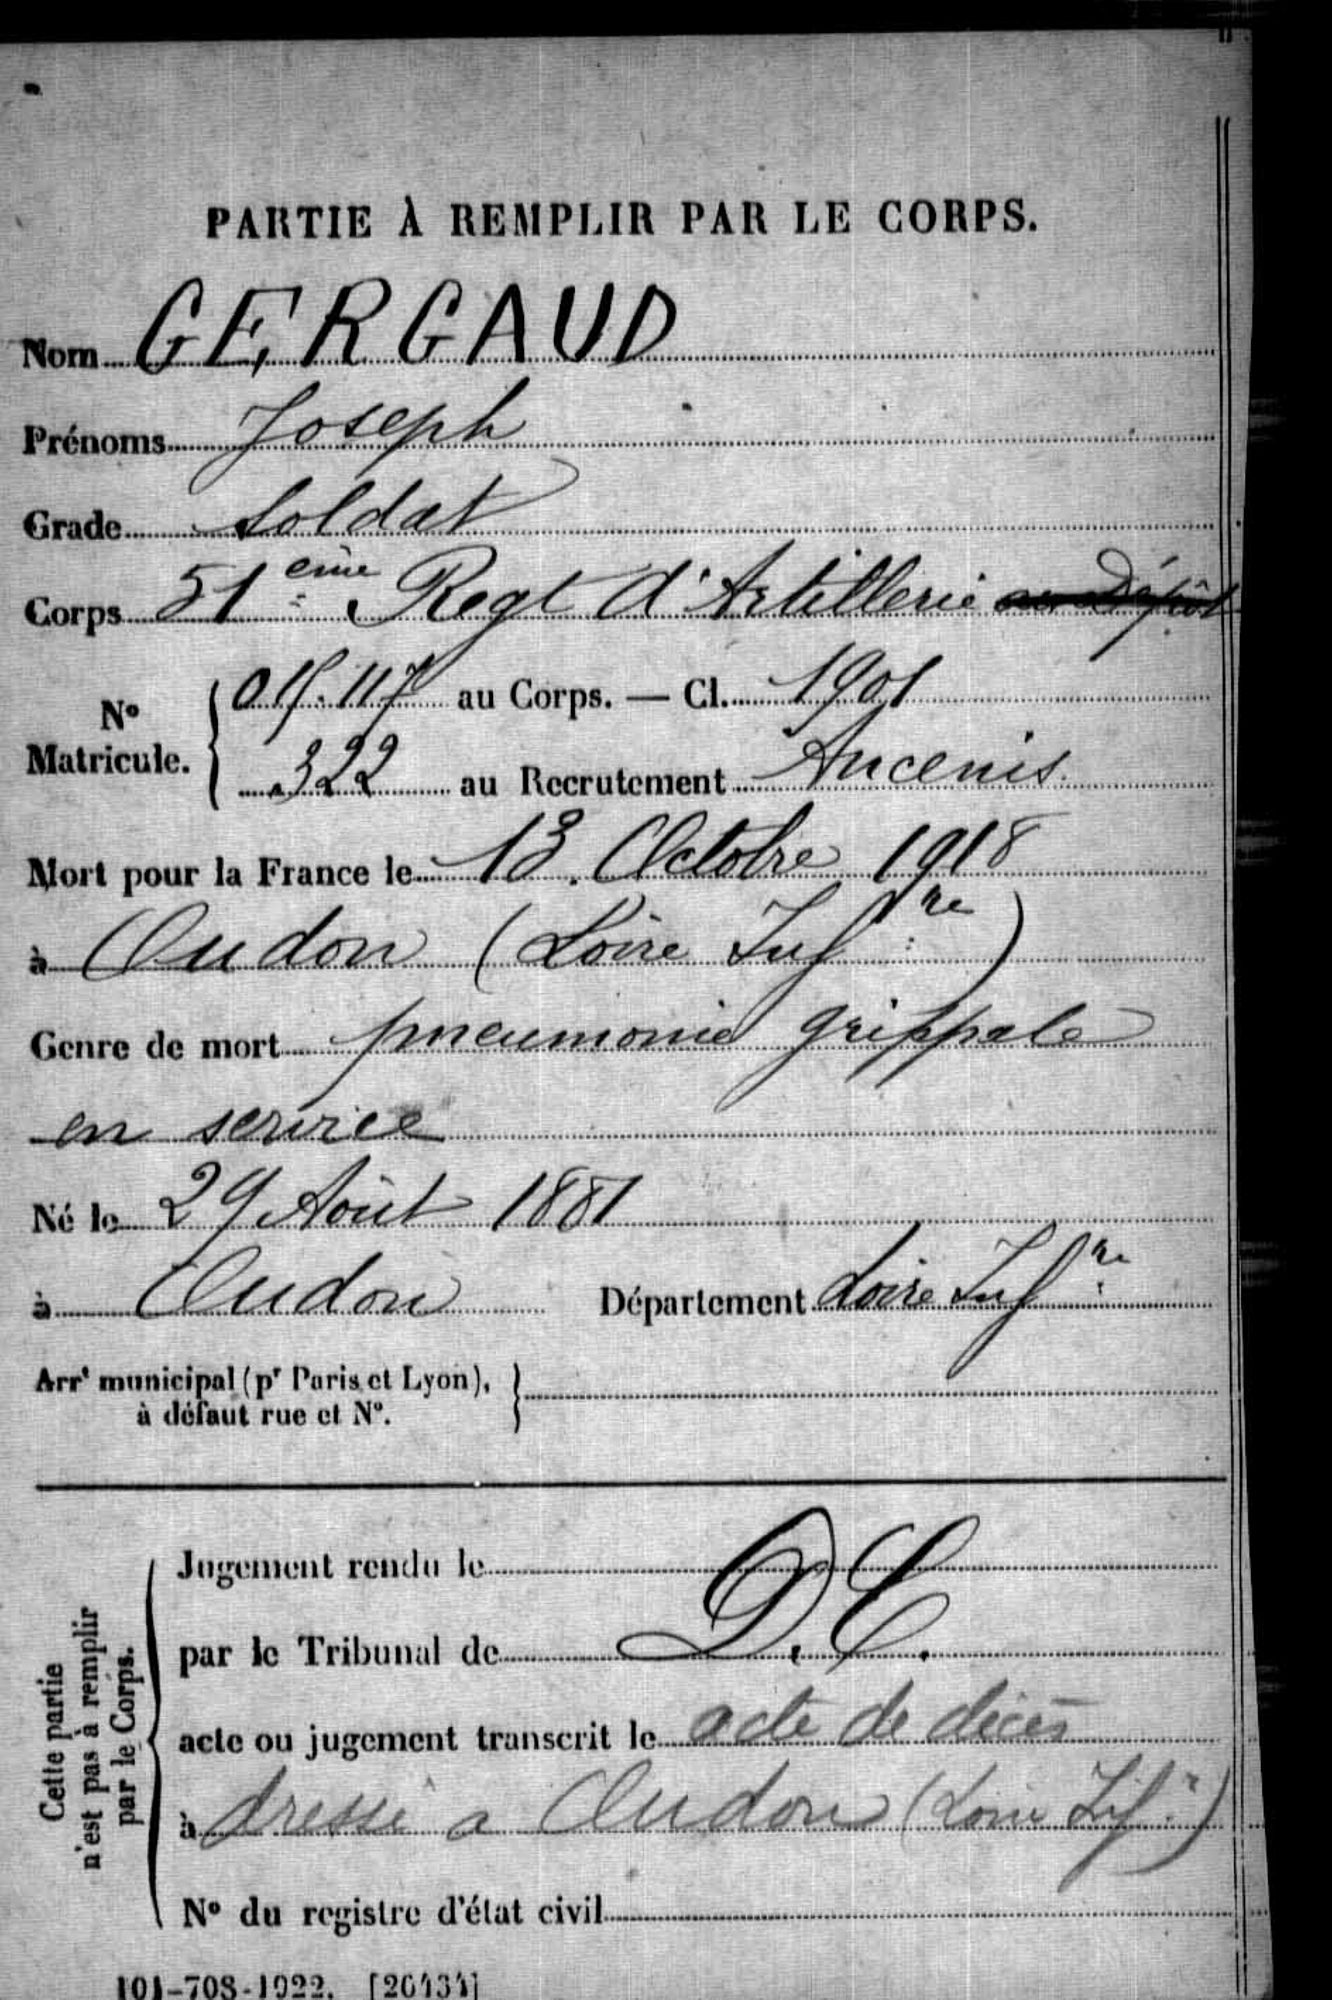 PARTIE À REMPLIR PAR LE CORPS.
Nom GERGAUD
Prénoms Joseph
Grade Soldat
Corps 51ème Regt d'Artillerie au Dépôt
N° Matricule. 015.117 au Corps. — Cl. 1901
322 au Recrutement Ancenis
Mort pour la France le 13 Octobre 1918
à Oudon (Loire Infre)
Genre de mort pneumonie grippale
en service
Né le 29 Août 1881
à Oudon Département Loire Infre
Arrt municipal (pr Paris et Lyon),
à défaut rue et N°.
Cette partie
n'est pas à remplir
par le Corps.
Jugement rendu le
par le Tribunal de D.C.
acte ou jugement transcrit le acte de décès
à dressé a Oudon (Loire Infr)
N° du registre d'état civil
101-708-1922. [26434]